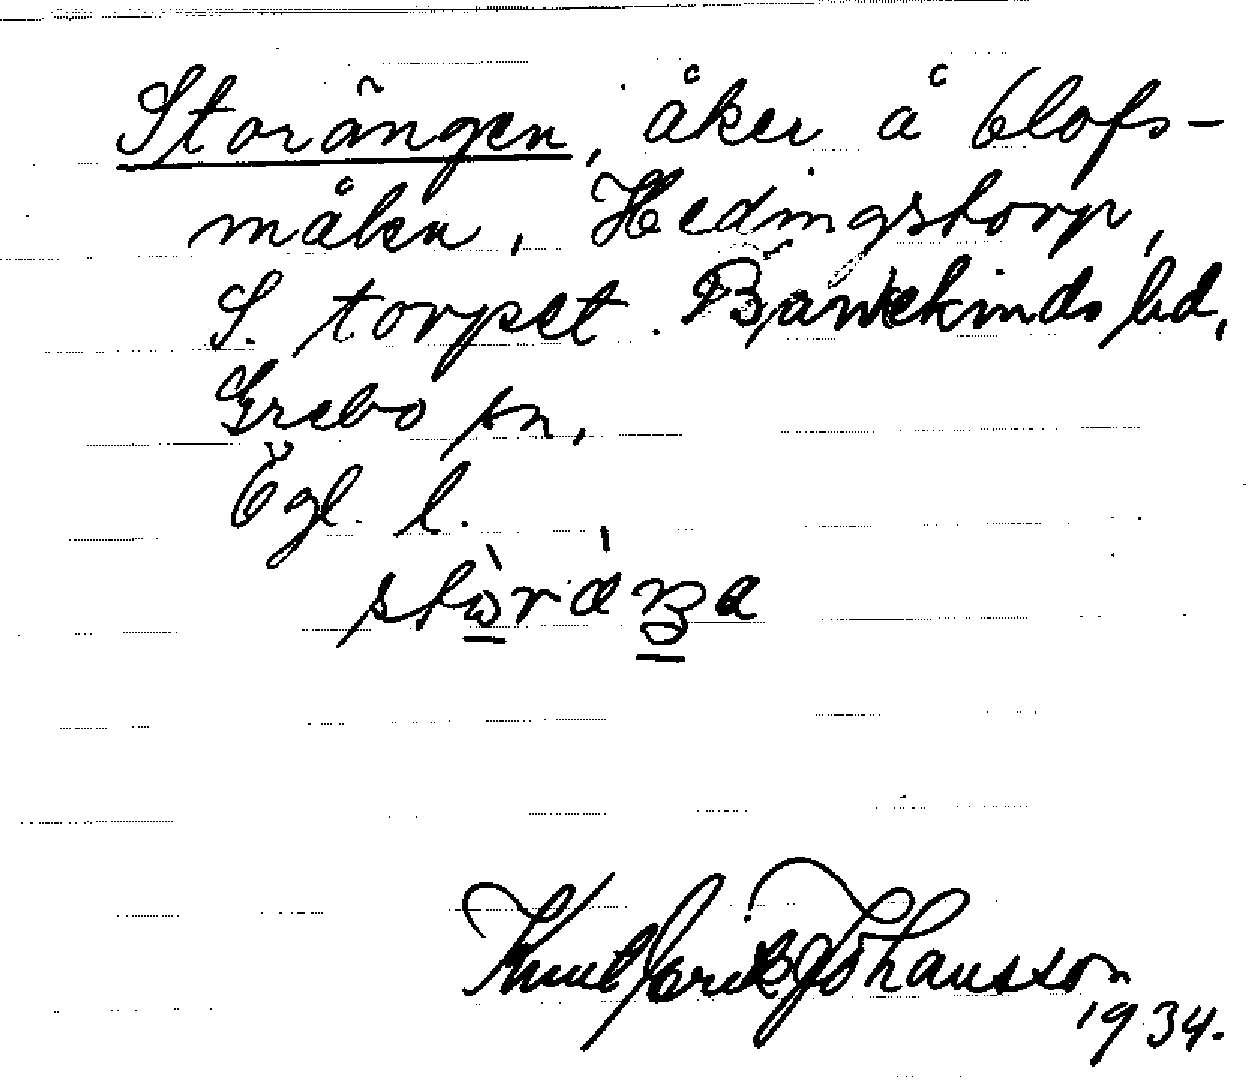 Storängen, åker å Olofs-
målen, Hedingstorp,
S. torpet. Bankekinds hd,
Grebo sn,
Ögl. l.
Knut Erik Johansson
1934.